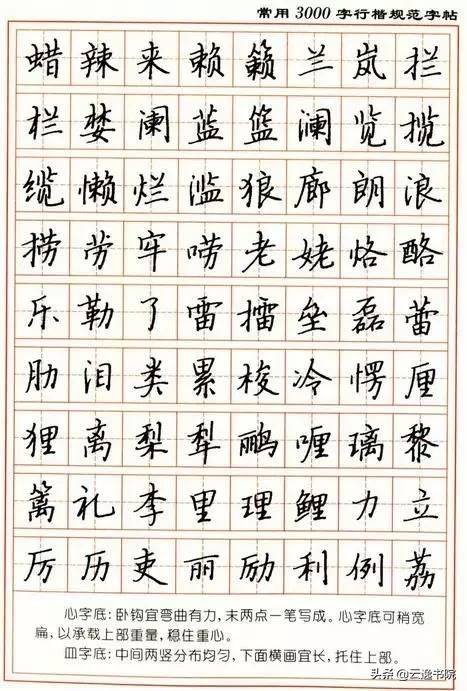 常用3000字行楷规范字帖
蜡辣来赖籁兰岚拦
栏婪阑蓝篮澜览揽
缆懒烂滥狼廊朗浪
捞劳牢唠老姥烙酪
乐勒了雷擂垒磊蕾
肋泪类累棱冷愣厘
狸离梨犁鹂喱璃黎
篱礼李里理鲤力立
厉历吏丽励利例荔
心字底：卧钩宜弯曲有力，末两点一笔写成。心字底可稍宽
扁，以承载上部重量，稳住重心。
皿字底：中间两竖分布均匀，下面横画宜长，托住上部。
头条@云逸书院